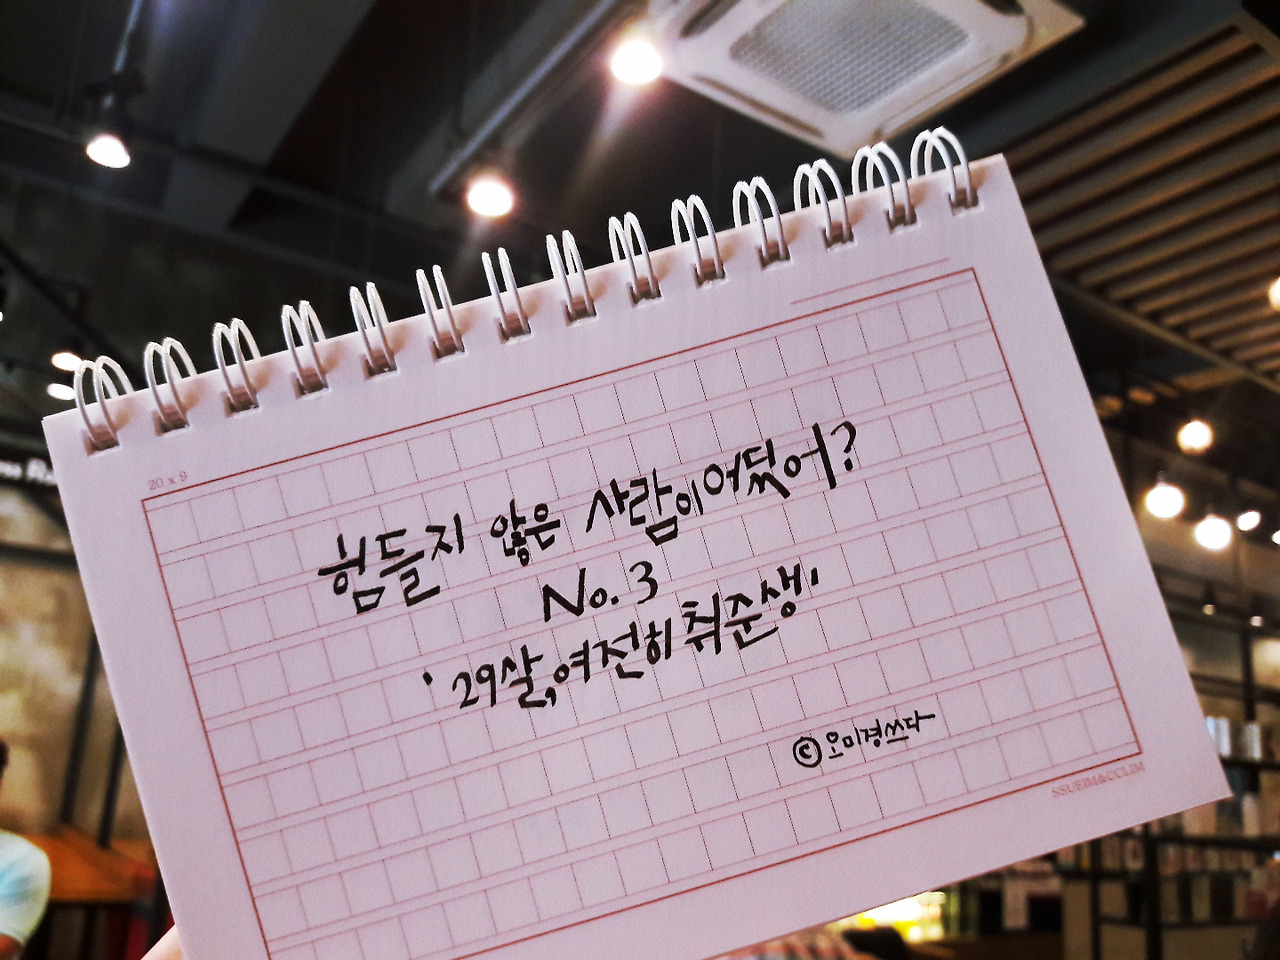 20 x 9
힘들지 않은 사람이 어딨어?
No. 3
'29살, 여전히 취준생'
© 오미경쓰다
SSUEIM&CCLIM